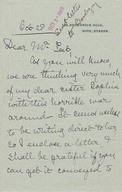 Oct 29
Dear Mr
As you will know
we are thinking very much
of my dear sister Sophia
with this horrible war
around. It seems useless
to be writing direct to her
so I enclose a letter &
shall be grateful if you
can get it conveyed to